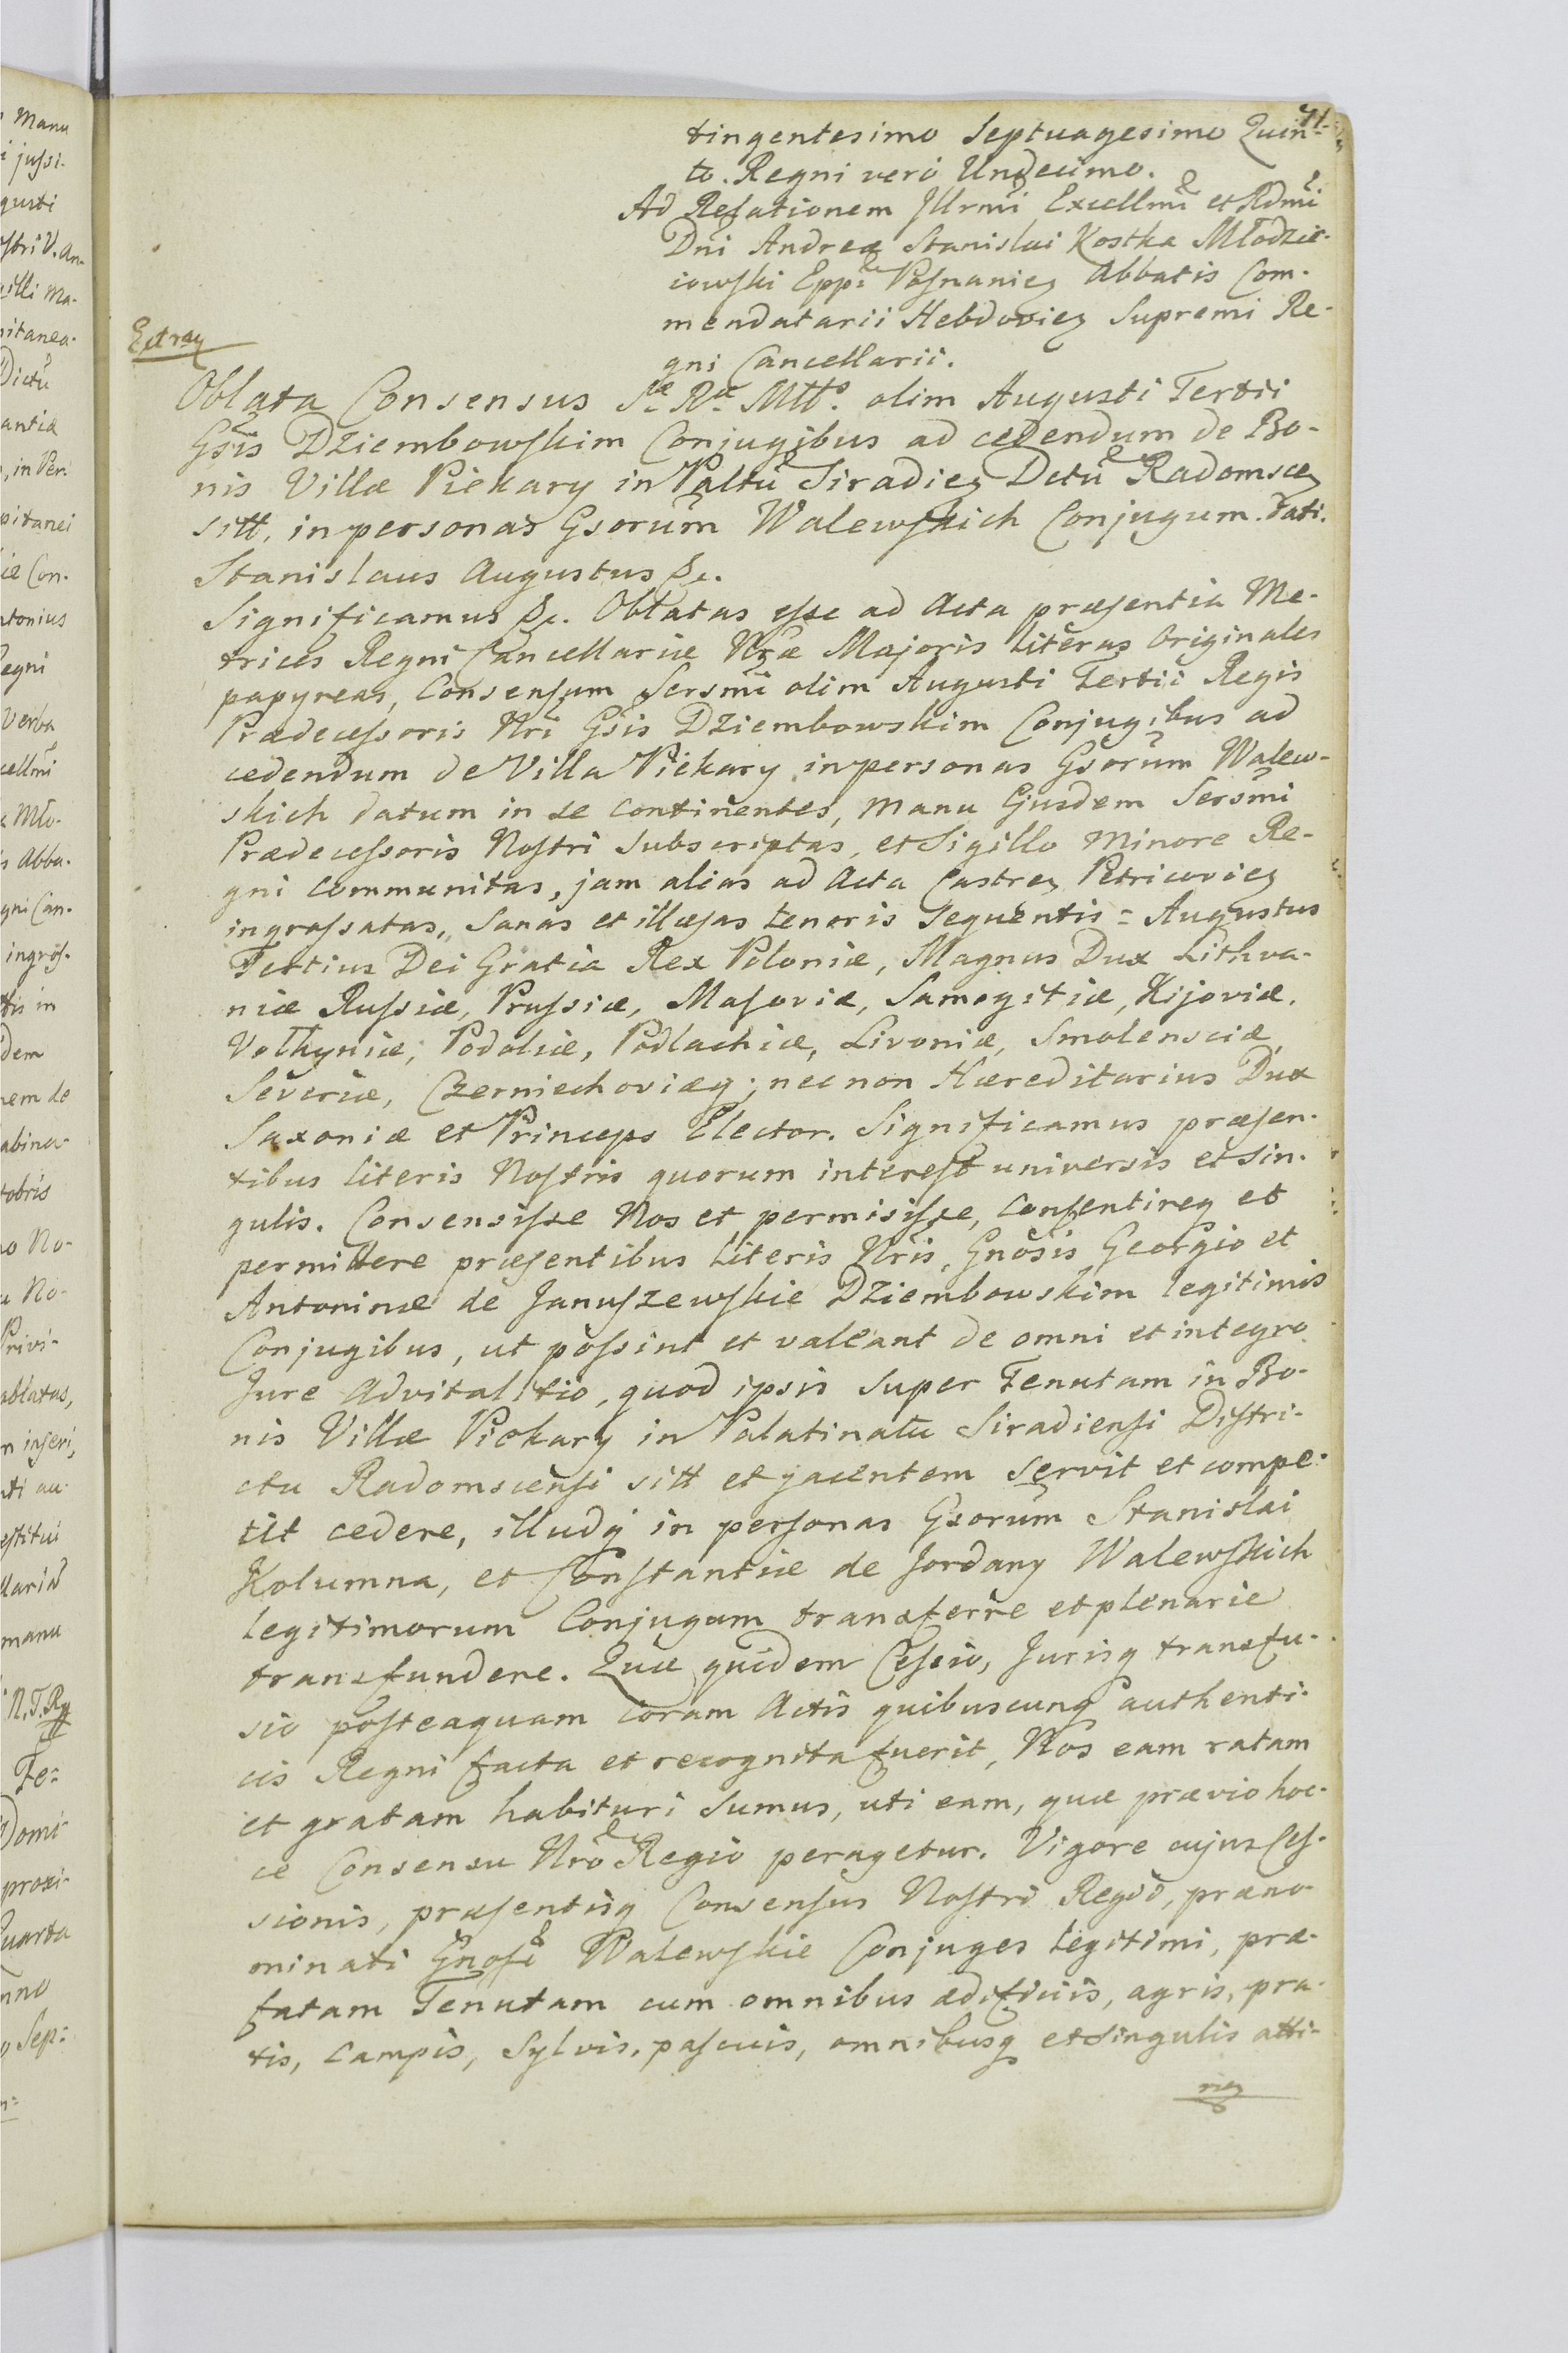 71
tingentesimo Septuagesimo Quin-
to. Regni vero Undecimo.
Ad Relationem Illrmi Excellmi et Rdmi
Dni Andreæ Stanislai Kostka Młodzie-
iowski Eppi Posnaniez Abbatis Com-
mendatarii Hebdoviez Supremi Re-
gni Cancellarii.
Extraz
Oblata Consensus Sæ Ræ Mtts. olim Augusti Tertii
Gsis Dziembowskim Conjugibus ad cedendum de Bo-
nis Villæ Piekary in Paltu Siradiez Dctu Radomscez
sitt, in personas Gsorum Walewskich Conjugum. dati.
Stanislaus Augustus &c.
Significamus &c. Oblatas esse ad Acta præsentia Me-
trices Regni Cancellariæ Nræ Majoris literas Originales
papyreas, Consensum Sersmi olim Augusti Tertii Regis
Prædecessoris Nri Gsis Dziembowskim Conjugibus ad
cedendum de Villa Piekary in personas Gsorum Walew-
skich datum in se continentes, manu Ejusdem Sersmi
Prædecessoris Nostri Subscriptas, et Sigillo minore Re-
gni communitas, jam alias ad Acta Castrez Petricoviez
ingrossatas, Sanas et illæsas tenoris Sequentis = Augustus
Tertius Dei Gratia Rex Poloniæ, Magnus Dux Lithva-
niæ Russiæ, Prussiæ, Masoviæ, Samogitiæ, Kijoviæ,
Volhyniæ, Podoliæ, Podlachiæ, Livoniæ, Smolensciæ,
Severiæ, Czerniechoviæq; nec non Hæreditarius Dux
Saxoniæ et Princeps Elector. Significamus præsen-
tibus literis Nostris quorum interest universis et sin-
gulis. Consensisse Nos et permisisse, Consentireq et
permittere præsentibus literis Nris, Gnosis Georgio et
Antoninæ de Januszewskie Dziembowskim legitimis
Conjugibus, ut possint et valeant de omni et integro
Jure Advitalitio, quod ipsis super Tenutam in Bo-
nis Villæ Piekary in Palatinatu Siradiensi Distri-
ctu Radomscensi sitt et jacentem servit et compe-
tit cedere, illudq in personas Gsorum Stanislai
Kolumna, et Constantiæ de Jordany Walewskich
legitimorum Conjugum transferre et plenarie
transfundere. Quæ quidem Cessio, Jurisq transfu-
sio posteaquam coram Actis quibuscunq authenti-
cis Regni facta et recognita fuerit, Nos eam ratam
et gratam habituri sumus, uti eam, quæ prævio hoc-
ce Consensu Nro Regio peragetur. Vigore cujus Ces-
sionis, præsentisq Consensus Nostri Regii, præno-
minati Gnosi Walewskie Conjuges legitimi, præ-
fatam Tenutam cum omnibus ædificiis, agris, pra-
tis, Campis, Sylvis, pascuis, omnibusq et singulis atti-
nez